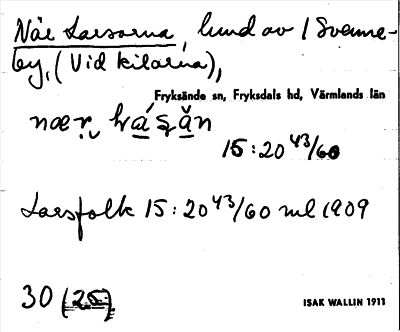 När Larsarna, lund av / Svenne-
by, (Vid kilarna),
Fryksände sn, Fryksdals hd, Värmlands län
15:20 43/60
Larsfolk 15:20 43/60 ml 1909
30 (25)
ISAK WALLIN 1911